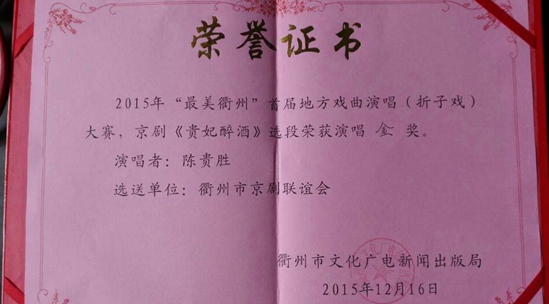 荣誉证书
2015年“最美衢州”首届地方戏曲演唱（折子戏）
大赛，京剧《贵妃醉酒》选段荣获演唱 金 奖。
演唱者：陈贵胜
选送单位：衢州市京剧联谊会
衢州市文化广电新闻出版局
2015年12月16日